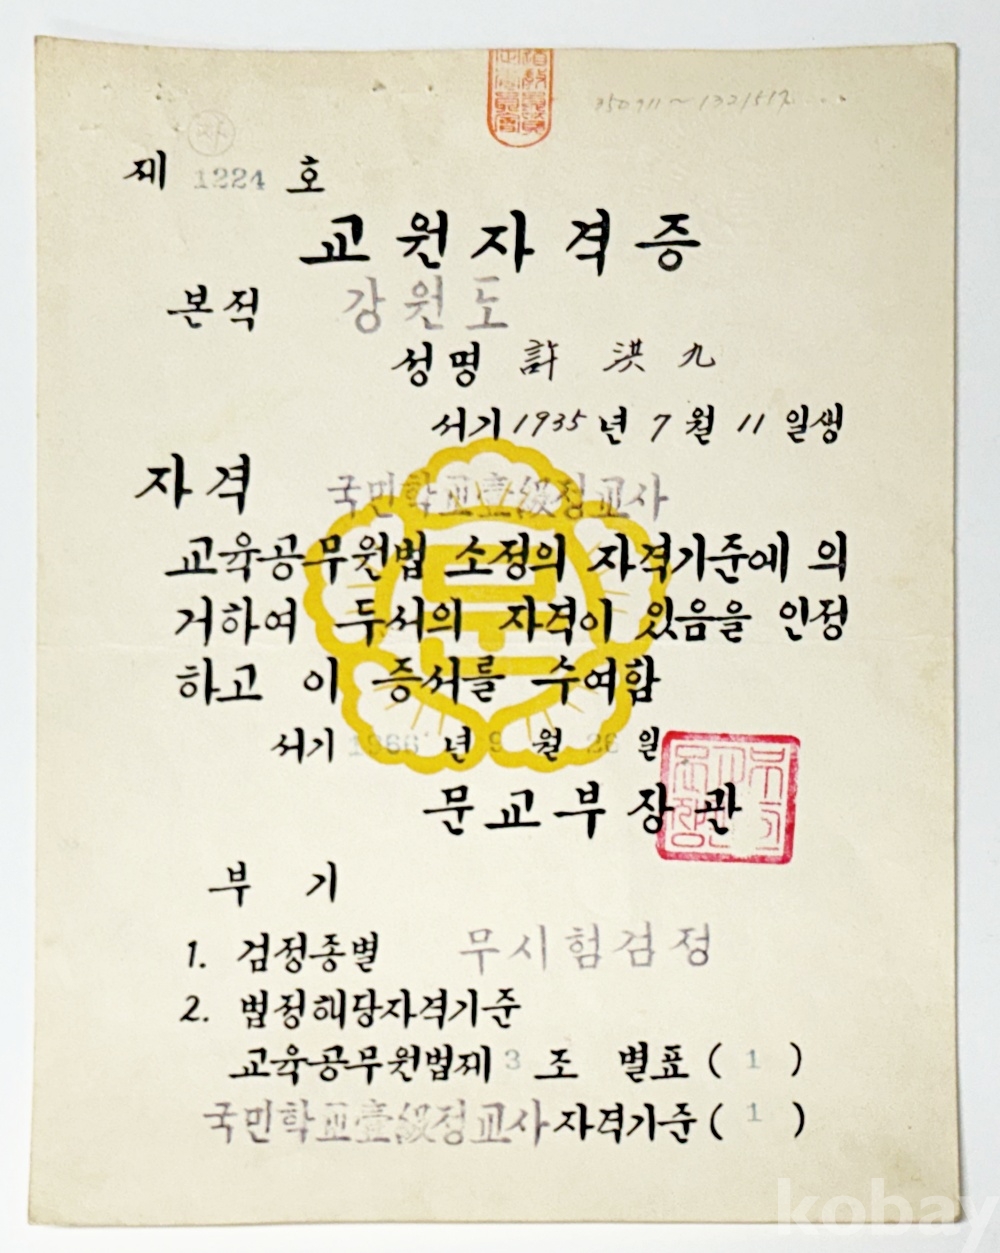 350711~1321517
제 1224 호
교원자격증
본적 강원도
성명 許 洪 九
서기 1935 년 7 월 11 일생
자격 국민학교壹級정교사
교육공무원법 소정의 자격기준에 의
거하여 두서의 자격이 있음을 인정
하고 이 증서를 수여함
서기 1966 년 9 월 26 일
문교부장관
부 기
1. 검정종별 무시험검정
2. 법정해당자격기준
교육공무원법제 3 조 별표 ( 1 )
국민학교壹級정교사자격기준 ( 1 )
kobay